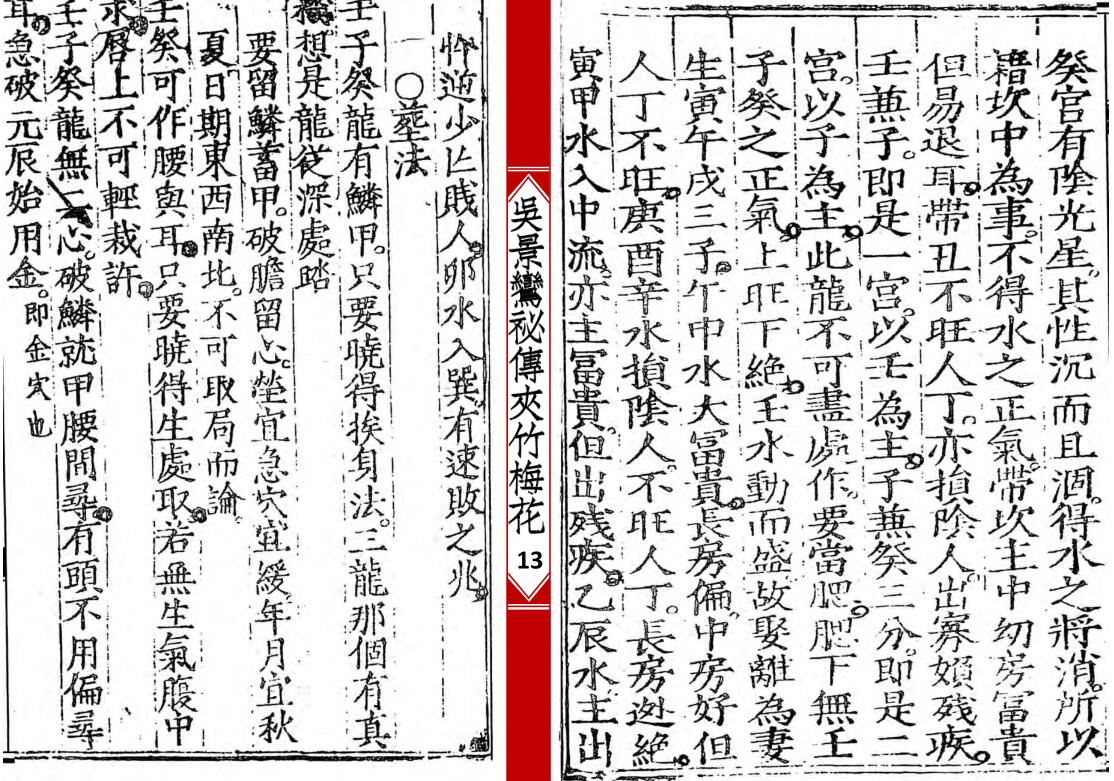 癸宮有陰光星。其性沉而且涸。得水之將消。所以
藉坎中為事。不得水之正氣。帶坎主中幼房冨貴
但易退耳。帶丑不旺人丁。亦損陰人。出寡婦殘疾。
壬兼子。即是一宮。以壬為主。子兼癸三分。即是二
宮。以子為主。此龍不可盡處作。要當肥。肥下無壬
子癸之正氣。上旺下絕。壬水動而盛。故娶離為妻
生寅午戌三子。午申水大富貴。長房偏。中房好。但
人丁不旺。庚酉辛水損陰人。不旺人丁。長房迯絕。
寅甲水入中流。亦主冨貴。但出殘疾。乙辰水主出
吳景鸞祕傳夾竹梅花 13
忤逆少亡賤人。卯水入巽。有速敗之兆。
○塟法
壬子癸龍有鱗甲。只要曉得挨身法。三龍那個有真
機。想是龍從深處踏
要留鱗蓄甲。破膽留心。塋宜急。穴宜緩。年月宜秋
夏。日期東西南北。不可取局而論。
壬癸可作腰與耳。只要曉得生處取。若無生氣腹中
求。唇上不可輕裁許。
壬子癸龍無二心。破鱗就甲腰間尋。有頭不用偏尋
耳。急破元辰始用金。即金穴也